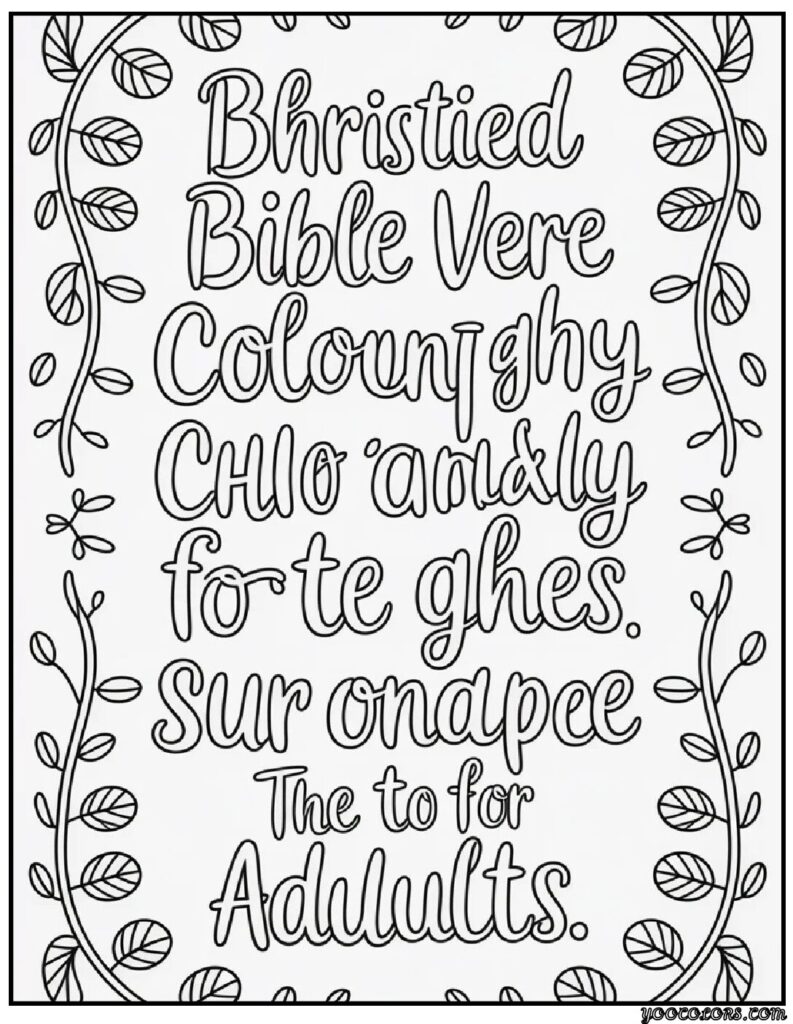 Bhristied
Bible Vere
Colounghy
CHIO 'anıdly
for te ghes.
Sur ondapee
The to for
Aduluults.
yoocolors.com